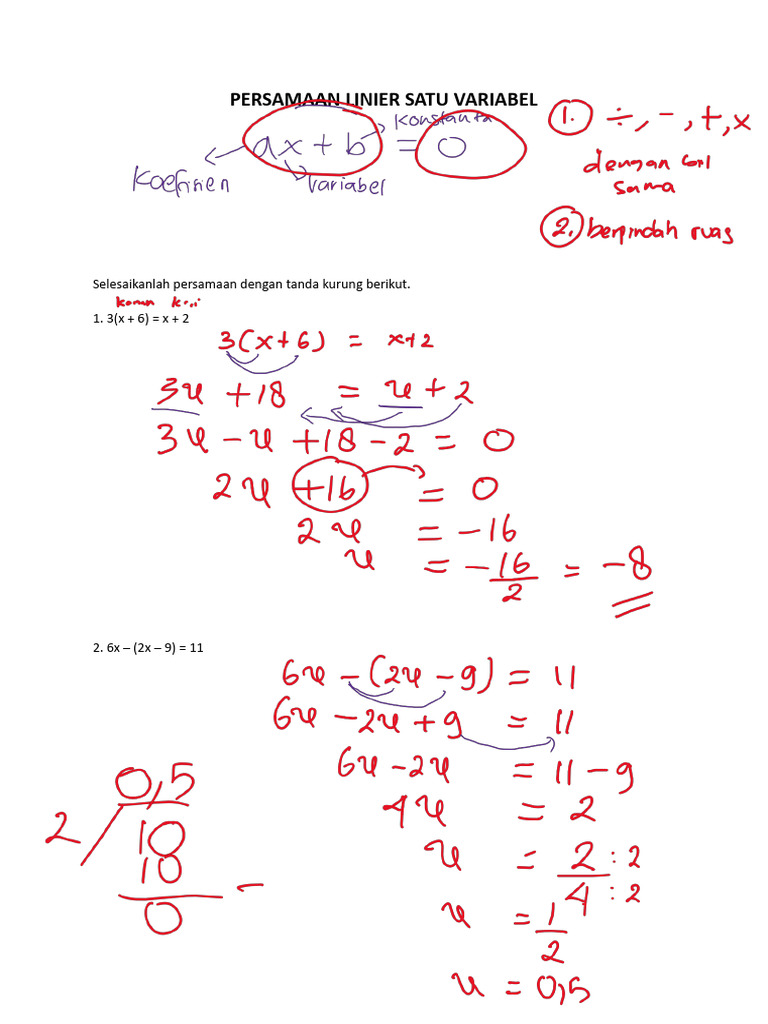 PERSAMAAN LINIER SATU VARIABEL
konstanta
ax + b = 0
Koefisien
Variabel
1. ÷, -, +, x
dengan
sama
2. berpindah ruas
Selesaikanlah persamaan dengan tanda kurung berikut.
1. 3(x + 6) = x + 2
3(x+6) = x+2
3x + 18 = x + 2
3x - x + 18 - 2 = 0
2x +16 = 0
2x = -16
x = -16/2 = -8
2. 6x – (2x – 9) = 11
6x - (2x - 9) = 11
6x - 2x + 9 = 11
6x - 2x = 11 - 9
4x = 2
x = 2/4 :2 :2
x = 1/2
x = 0,5
0,5
2 / 10
10
0